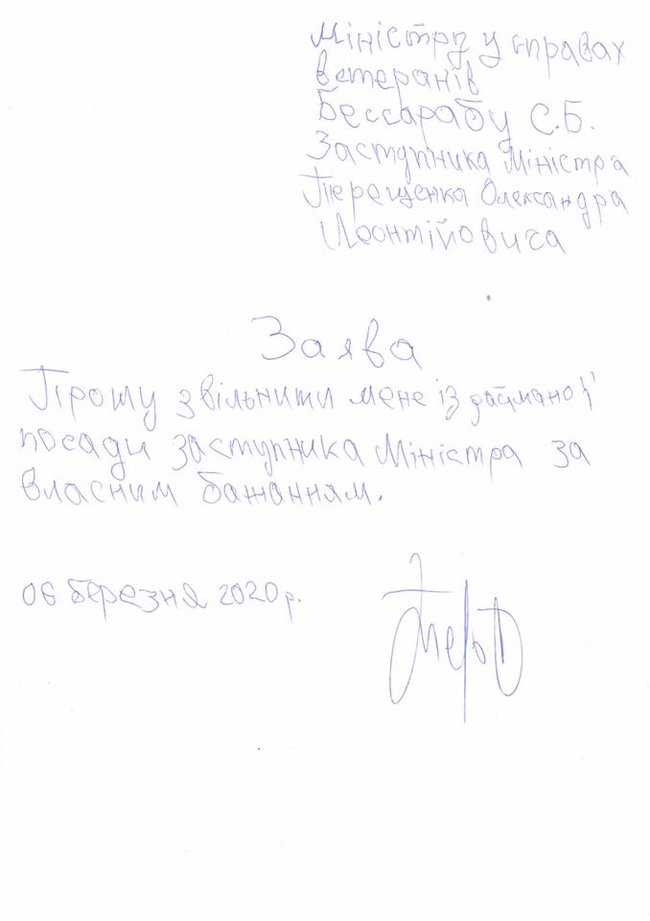 Міністру у справах
ветеранів
Бессарабу С.Б.
Заступника Міністра
Терещенка Олександра
Леонтійовича
Заява
Прошу звільнити мене із займаної
посади заступника Міністра за
власним бажанням.
06 березня 2020 р.